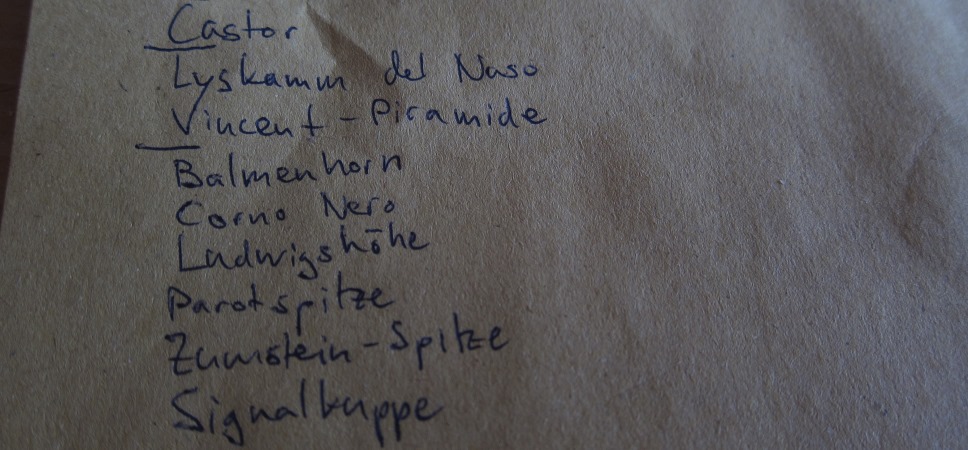 Castor
Lyskamm del Naso
Vincent-Piramide
Balmenhorn
Corno Nero
Ludwigshöhe
Parotspitze
Zumstein-Spitze
Signalkuppe